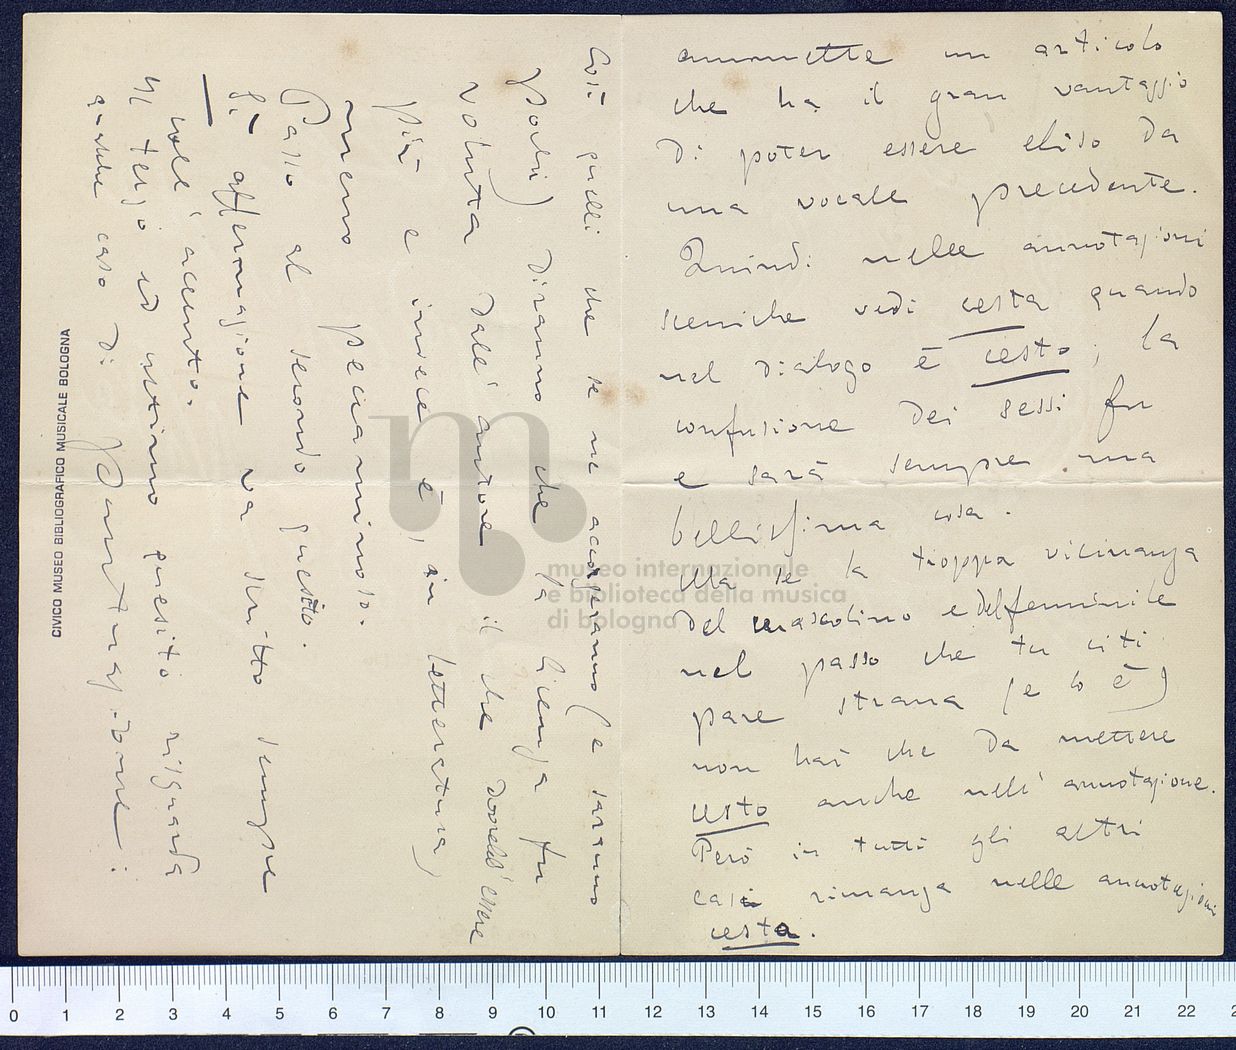 ammette un articolo
che ha il gran vantaggio
di poter essere eliso da
una vocale precedente.
Quindi nelle annotazioni
sceniche vedi cesta quando
nel dialogo è cesto; la
confusione dei sessi fu
e sarà sempre una
bellissima cosa.
Ma se la troppa vicinanza
del mascolino e del femminile
nel passo che tu citi
pare strana (e lo è)
non hai che da mettere
cesto anche nell'annotazione.
Però in tutti gli altri
casi rimanga nelle annotazioni
cesta.
Così quelli che se ne accorgeranno (e saranno
pochi) diranno che la licenza fu
voluta dall'autore il che dovrebb'essere
più e invece è, in letteratura,
meno peccaminoso.
Passo al secondo quesito.
Sì affermazione va scritto sempre
coll'accento.
Il terzo ed ultimo quesito riguarda
qualche caso di punteggiatura:
CIVICO MUSEO BIBLIOGRAFICO MUSICALE BOLOGNA
museo internazionale
e biblioteca della musica
di bologna
0 1 2 3 4 5 6 7 8 9 10 11 12 13 14 15 16 17 18 19 20 21 22